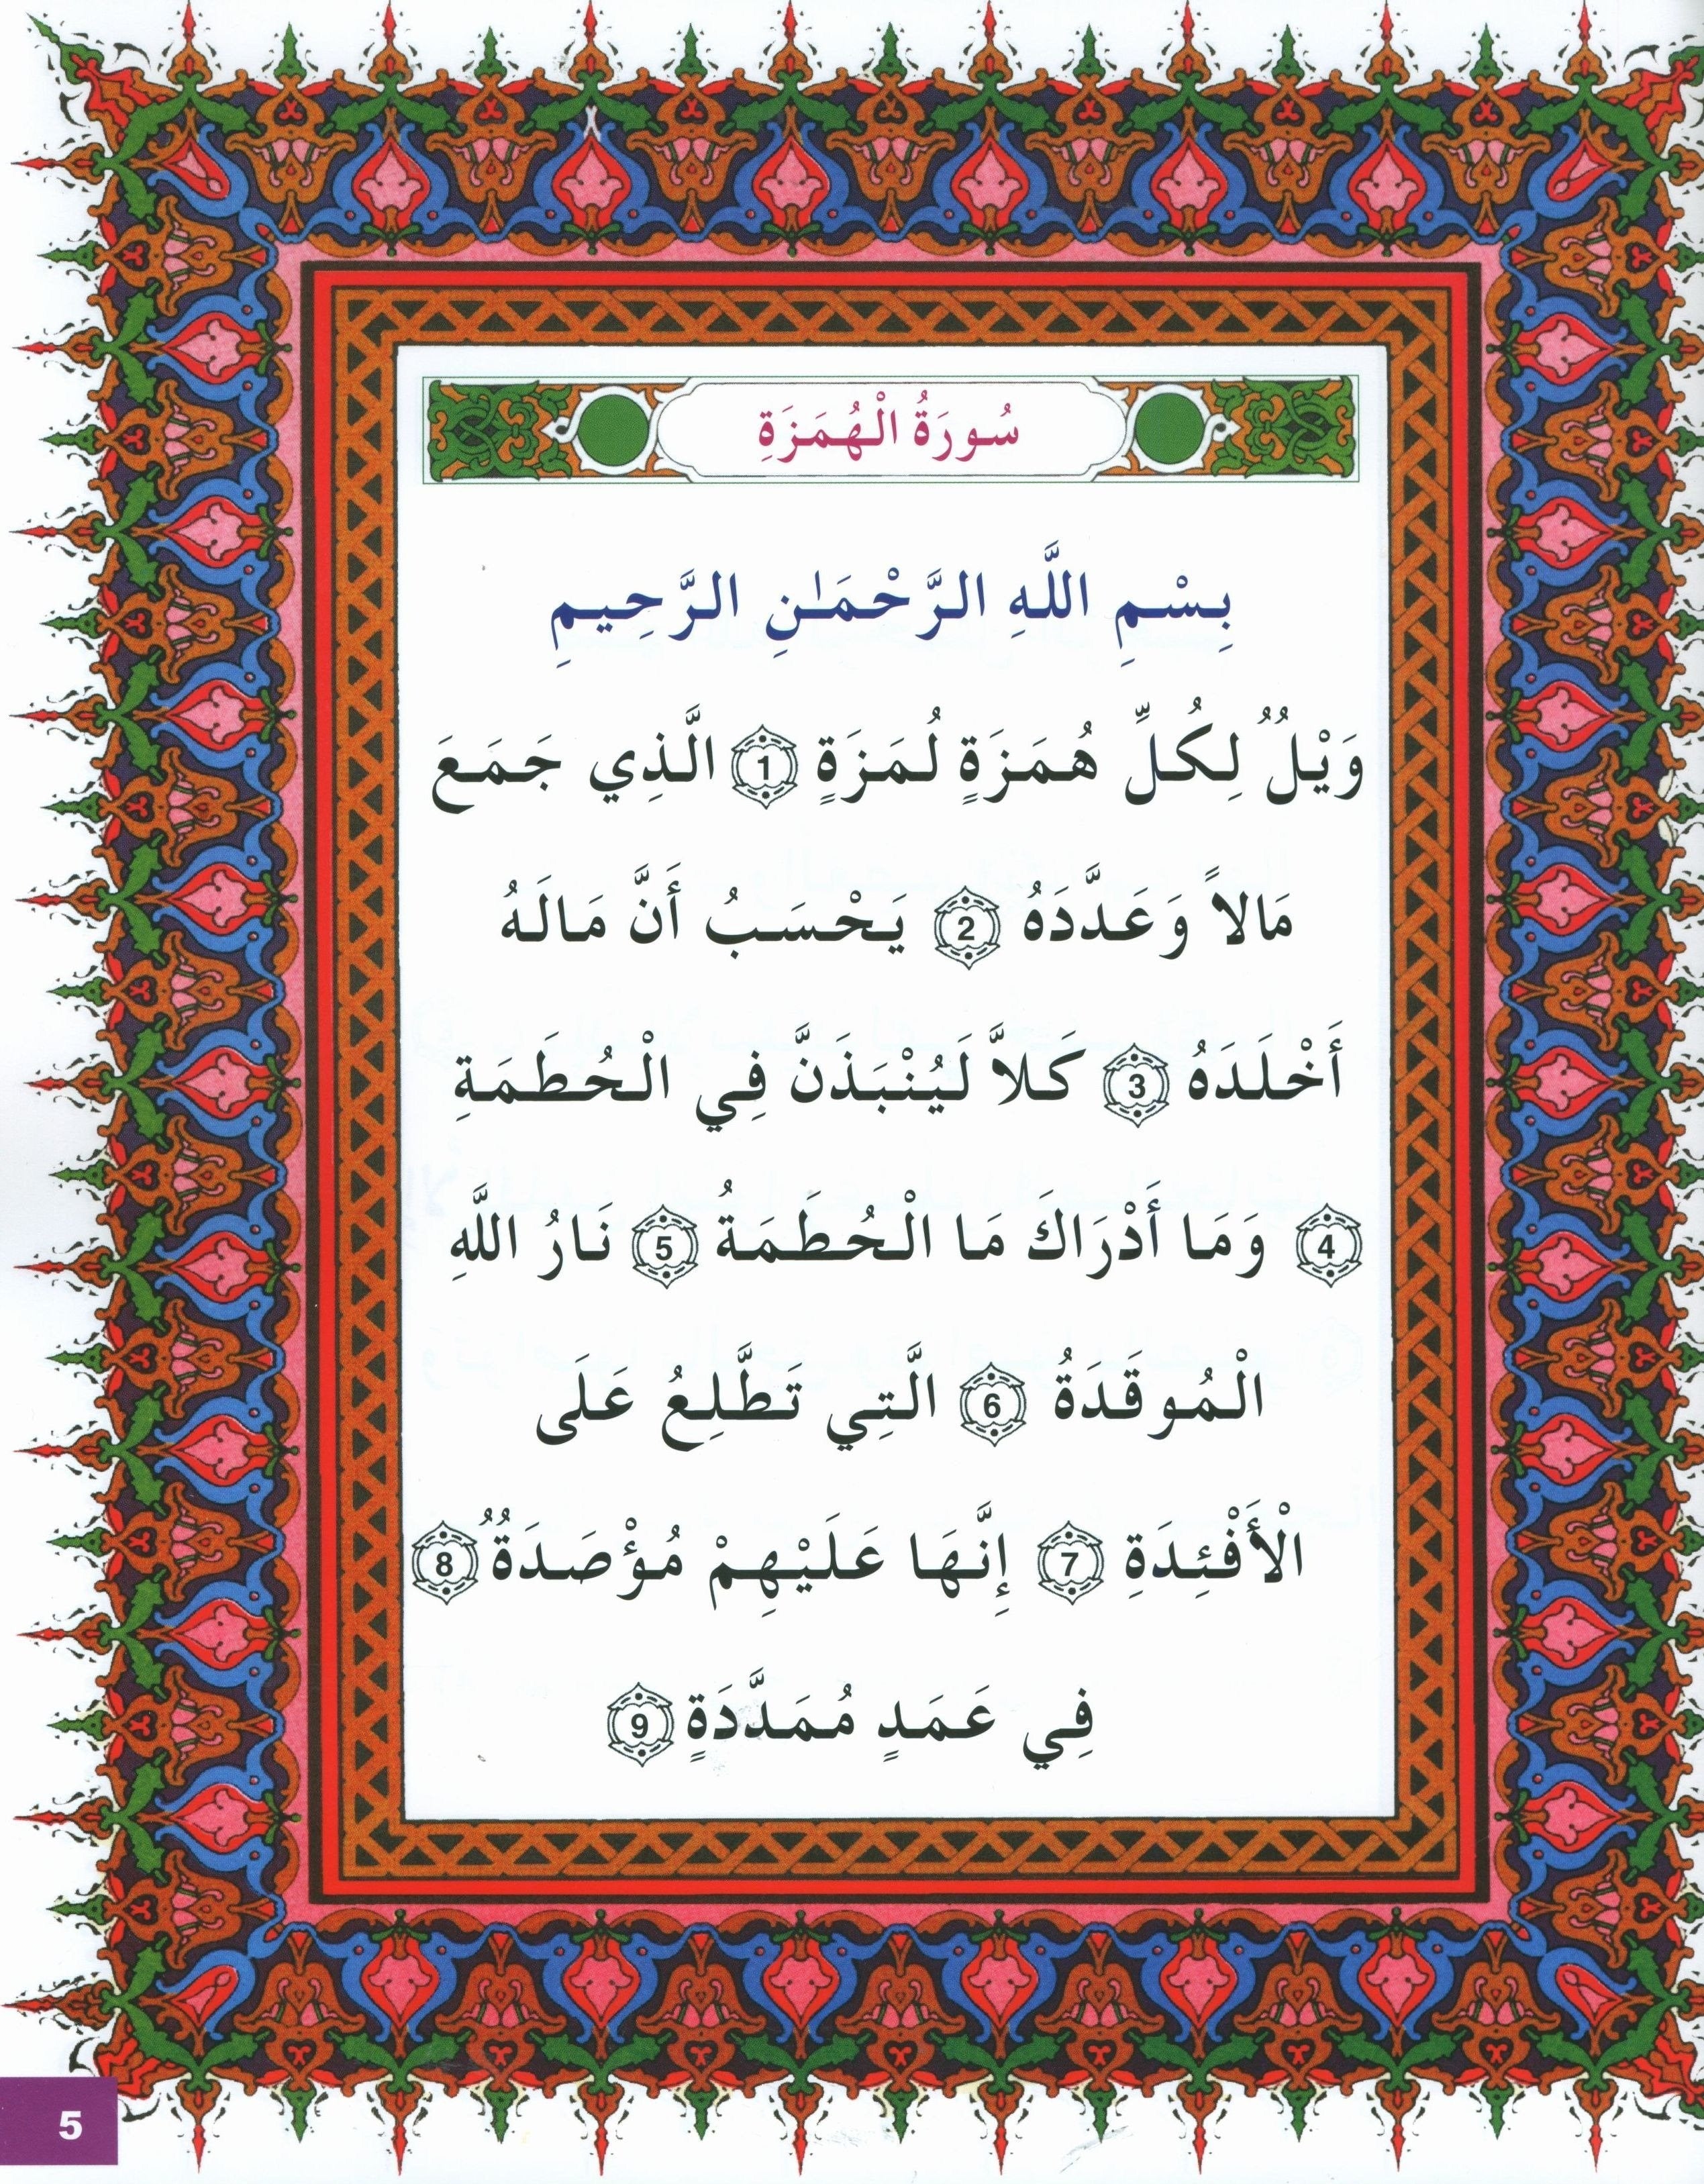 سُورَةُ الْهُمَزَةِ
بِسْمِ اللَّهِ الرَّحْمَٰنِ الرَّحِيمِ
وَيْلٌ لِكُلِّ هُمَزَةٍ لُمَزَةٍ 1 الَّذِي جَمَعَ
مَالاً وَعَدَّدَهُ 2 يَحْسَبُ أَنَّ مَالَهُ
أَخْلَدَهُ 3 كَلاَّ لَيُنْبَذَنَّ فِي الْحُطَمَةِ
4 وَمَا أَدْرَاكَ مَا الْحُطَمَةُ 5 نَارُ اللَّهِ
الْمُوقَدَةُ 6 الَّتِي تَطَّلِعُ عَلَى
الْأَفْئِدَةِ 7 إِنَّهَا عَلَيْهِمْ مُؤْصَدَةٌ 8
فِي عَمَدٍ مُمَدَّدَةٍ 9
5